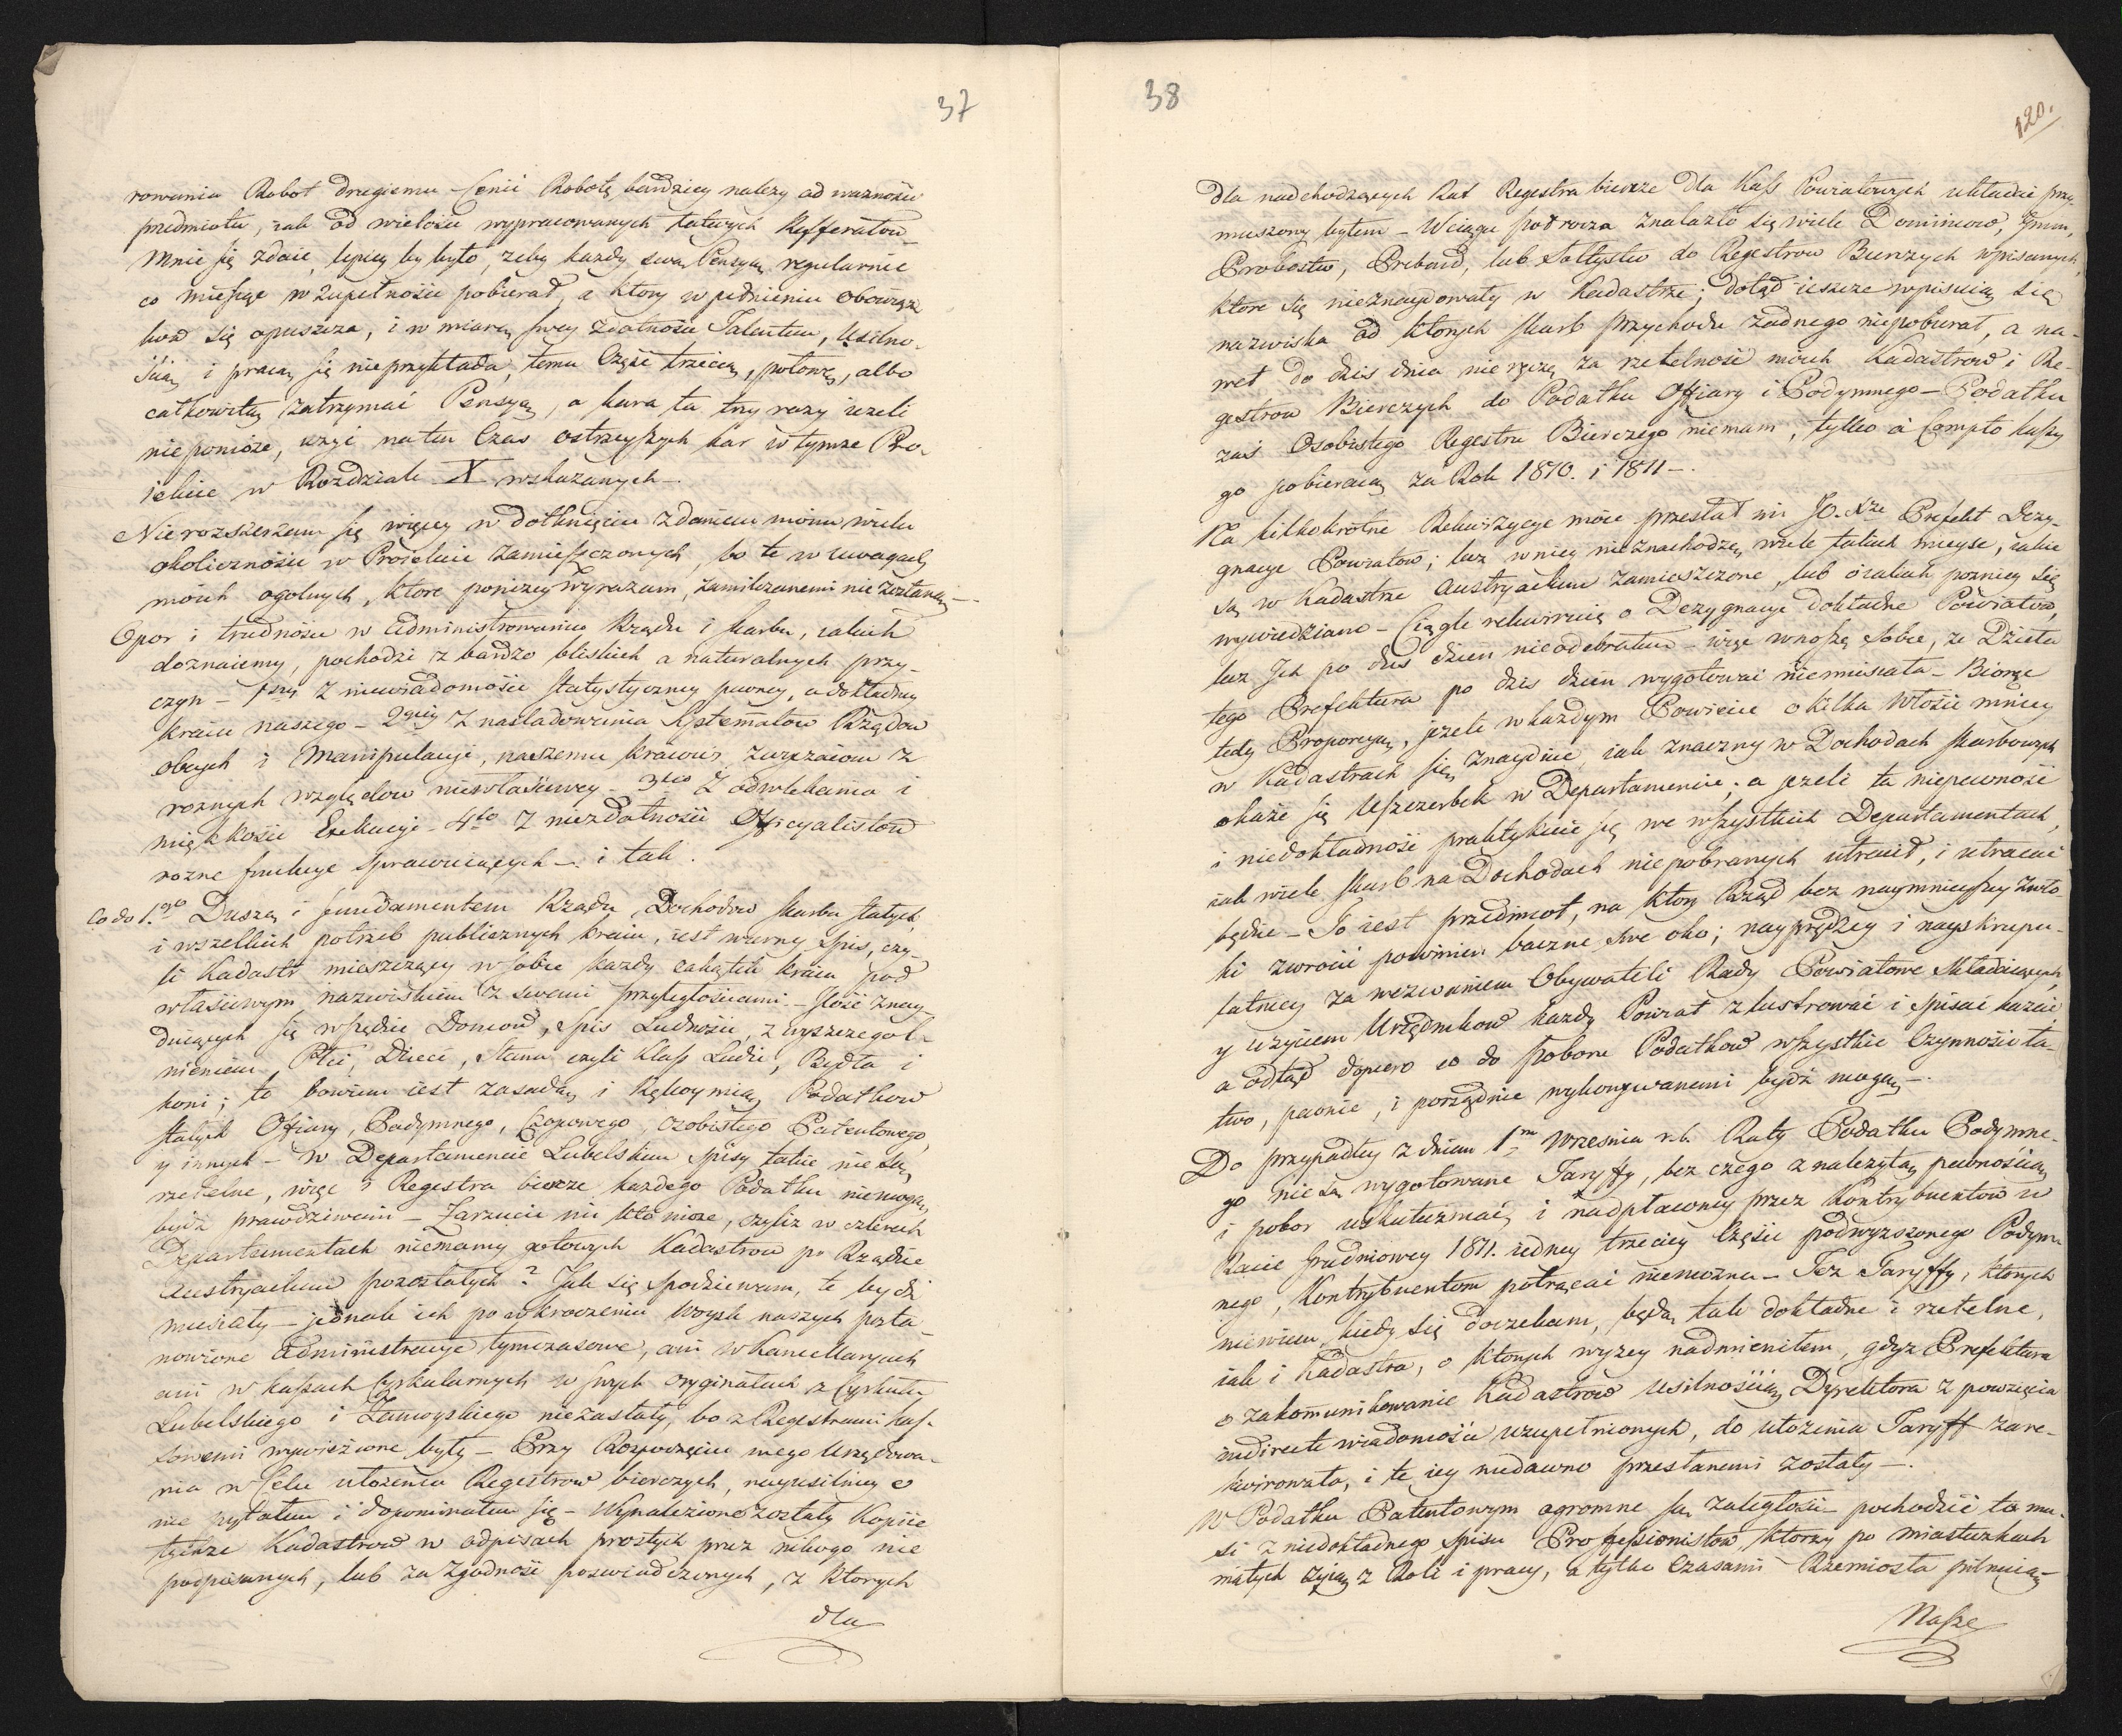 37
rowania Robot drugiemu – Cenić Robotę bardziey należy od ważności
przedmiotu, iak od wielości wypracowanych łatwych Refferatow –
Mnie się zdaie, lepiey by było, żeby każdy swą Pensyą regularnie
co miesiąc w zupełności pobierał, a ktory w pełnieniu obowiąz
kow się opuszcza, i w miarę swey zdatności Talentu, Usilno-
ścią i pracą się nieprzykłada, temu Część trzecią, połowę, albo
całkowitą zatrzymać Pensyą, a kara ta trzy razy ieżeli
niepomoże, użyć na ten Czas ostrzeyszych kar w tymże Pro-
iekcie w Rozdziale X wskazanych –
Nierozszerzam się więcey w dotknięciu zdaniem moim wielu
okoliczności w Proiekcie zamieszczonych, bo te w uwagach
moich ogolnych, ktore poniżey wyrażam, zamilczanemi nie zostaną –
Opor i trudności w Administrowaniu Rządu i Skarbu, iakich
doznaiemy, pochodzi z bardzo bliskich a naturalnych przy-
czyn – 1szy z niewiadomości statystyczney pewney, a dokładney
kraiu naszego – 2giey z naśladowania Systematow Rządow
obcych i Manipulacyi, naszemu kraiowi, zwyczaiom z
rożnych względow niewłaściwey – 3cio z odwlekania i
miękkości Exekucyi – 4to z niezdatności Officyalistow
rożne funkcye sprawuiących – i tak.
Co do 1.go Duszą i fundamentem Rządu, Dochodow skarbu stałych,
i wszelkich potrzeb publicznych kraiu, iest wierny spis, czy-
li Kadastr mieszczący w sobie każdy zakątek kraiu pod
właściwym nazwiskiem z swemi przyległościami – Ilość znay-
duiących się wszędzie Domow, spis Ludności, z wyszczegol-
nieniem, Płci, Dzieci, Stanu czyli Klass Ludzi, Bydła i
koni; to bowiem iest zasadą i Rękoymią Podatkow
stałych Ofiary, Podymnego, Czopowego, Osobistego Patentowego,
y innych – w Departamencie Lubelskim spisy takie nie są
rzetelne, więc i Regestra biercze każdego Podatku niemogą
bydź prawdziwemi – Zarzucić mi kto może, czyliż w czterech
Departamentach niemamy gotowych Kadastrow po Rządzie
Austryackim pozostałych? Jak się spodziewam, te bydź
musiały – jednak ich po wkroczeniu woysk naszych posta-
nowione Administracye tymczasowe, ani w Kancellaryach
ani w kassach Cyrkularnych w swych oryginałach z Cyrkułu
Lubelskiego i Zamoyskiego niezastały, bo z Regestrami Kas-
sowemi wywieźione były – Przy Rozpoczęciu mego Urzędowa-
nia w Celu ułożenia Regestrow bierczych, nayusilniey o
nie pytałem i dopominałem się – Wynalezione zostały Kopiie
tychże Kadastrow w odpisach prostych przez nikogo nie
podpisanych, lub za zgodność poświadczonych, z ktorych
dla
38
120.
dla nadchodzących Rat Regestra biercze dla Kass Powiatowych układać przy
muszony byłem – W ciągu połrocza znalazło się wiele Dominiow, Gmin,
Probostw, Prebend, lub Sołtystw do Regestrow Bierczych wpisanych,
ktore się nieznaydowały w Kadastrze; dotąd ieszcze wpisuią się
nazwiska od ktorych skarb przychodu żadnego niepobierał, a na-
wet do dziś dnia nie ręczę za rzetelność moich Kadastrow i Re-
gestrow Bierczych do Podatku Offiary i Podymnego – Podatku
zaś Osobistego Regestru Bierczego niemam, tylko à Compto kassy
go pobieraią za Rok 1810. i 1811 –
Na kilkokrotne Rekwizycye moie przesłał mi JO. Xże Prefekt Dezy-
gnacye Powiatow; lecz w niey nieznachodzę wiele takich mieysc, iakie
są w Kadastrze Austryackim zamieszczone, lub o iakich poźniey się
wywiedziano – Ciągle rekwiruię o Dezygnacye dokładne Powiatow,
lecz Ich po dziś dzień nieodebrałem – więc wnoszę sobie, że Dzieła
tego Prefektura po dziś dzień wygotować niemiała – Biorąc
tedy Proporcyą, jeżeli w każdym Powiecie o kilka Włości mniey
w Kadastrach się znayduie, iak znaczny w Dochodach skarbowych
okaże się Uszczerbek w Departamencie; a jeżeli ta niepewność
i niedokładność praktykuie się we wszystkich Departamentach,
iak wiele skarb na Dochodach niepobranych utracił, i utracać
będzie – To iest przedmiot, na ktory Rząd bez naymnieyszey zwło-
ki zwrocić powinien baczne swe oko; nayprędzey i nayskrupu-
latniey za wezwaniem Obywateli Rady Powiatowe składaiących,
y użyciem Urzędnikow każdy Powiat zlustrować i spisać kazać,
a odtąd dopiero co do poboru Podatkow wszystkie Czynności ła-
two, pewnie, i porządnie wykonywanemi bydź mogą –
Do przypadłey z dniem 1m Września r.b. Raty Podatku Podymne-
go nie są wygotowane Taryffy, bez czego z należytą pewnością
i pobor uskuteczniać, i nadpłaconey przez Kontrybuentow w
Racie Grudniowey 1811. iedney trzeciey Części podwyższonego Podym-
nego, Kontrybuentom potrącać niemożna – Też Taryffy, ktorych
niewiem, kiedy się doczekam, będą tak dokładne i rzetelne,
iak i Kadastra, o ktorych wyżey nadmieniłem, gdyż Prefektura
o zakommunikowanie Kadastrow usilnością Dyrektora z powzięcia
indirecte wiadomości uzupełnionych, do ułożenia Taryff zare-
kwirowała, i te iey niedawno przesłanemi zostały –
W Podatku Patentowym ogromne są zaległości – pochodzić to mu-
si z niedokładnego spisu Professionistow, ktorzy po miasteczkach
małych żyią z Roli i pracy, a tylko Czasami Rzemiosła pilnuią –
Nasze